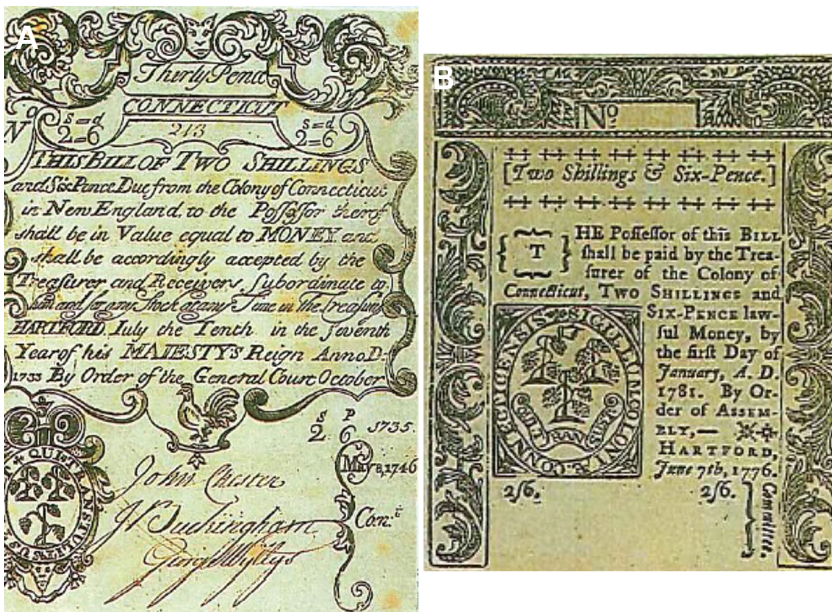 A
Thirty Pence
CONNECTICUT
N
243
s=d
2=6
s=d
2=6
THIS BILL OF TWO SHILLINGS
and Six Pence Due from the Colony of Connecticut
in New England to the Possessor therof
shall be in Value equal to MONEY and
shall be accordingly accepted by the
Treasurer and Receivers Subordinate to
him and for any Stock at any Time in the Treasury
HARTFORD, July the Tenth in the Seventh
Year of his MAIESTYS Reign Anno D:
1733 By Order of the General Court October
S P
2 6 1735.
May 8, 1746
QUI TRANSTULIT SUSTINET
John Chester
J Buckingham
George Wyllys
Con:t
B
No
[Two Shillings & Six-Pence.]
THE Possessor of this BILL
shall be paid by the Trea-
surer of the Colony of
Connecticut, TWO SHILLINGS and
SIX-PENCE law-
ful Money, by
the first Day of
January, A. D.
1781. By Or-
der of ASSEM-
BLY,—
HARTFORD,
June 7th, 1776.
SIGILLUM COLONIÆ CONNECTICENSIS
QUI TRANS SUST
2/6.
2/6.
Committee.